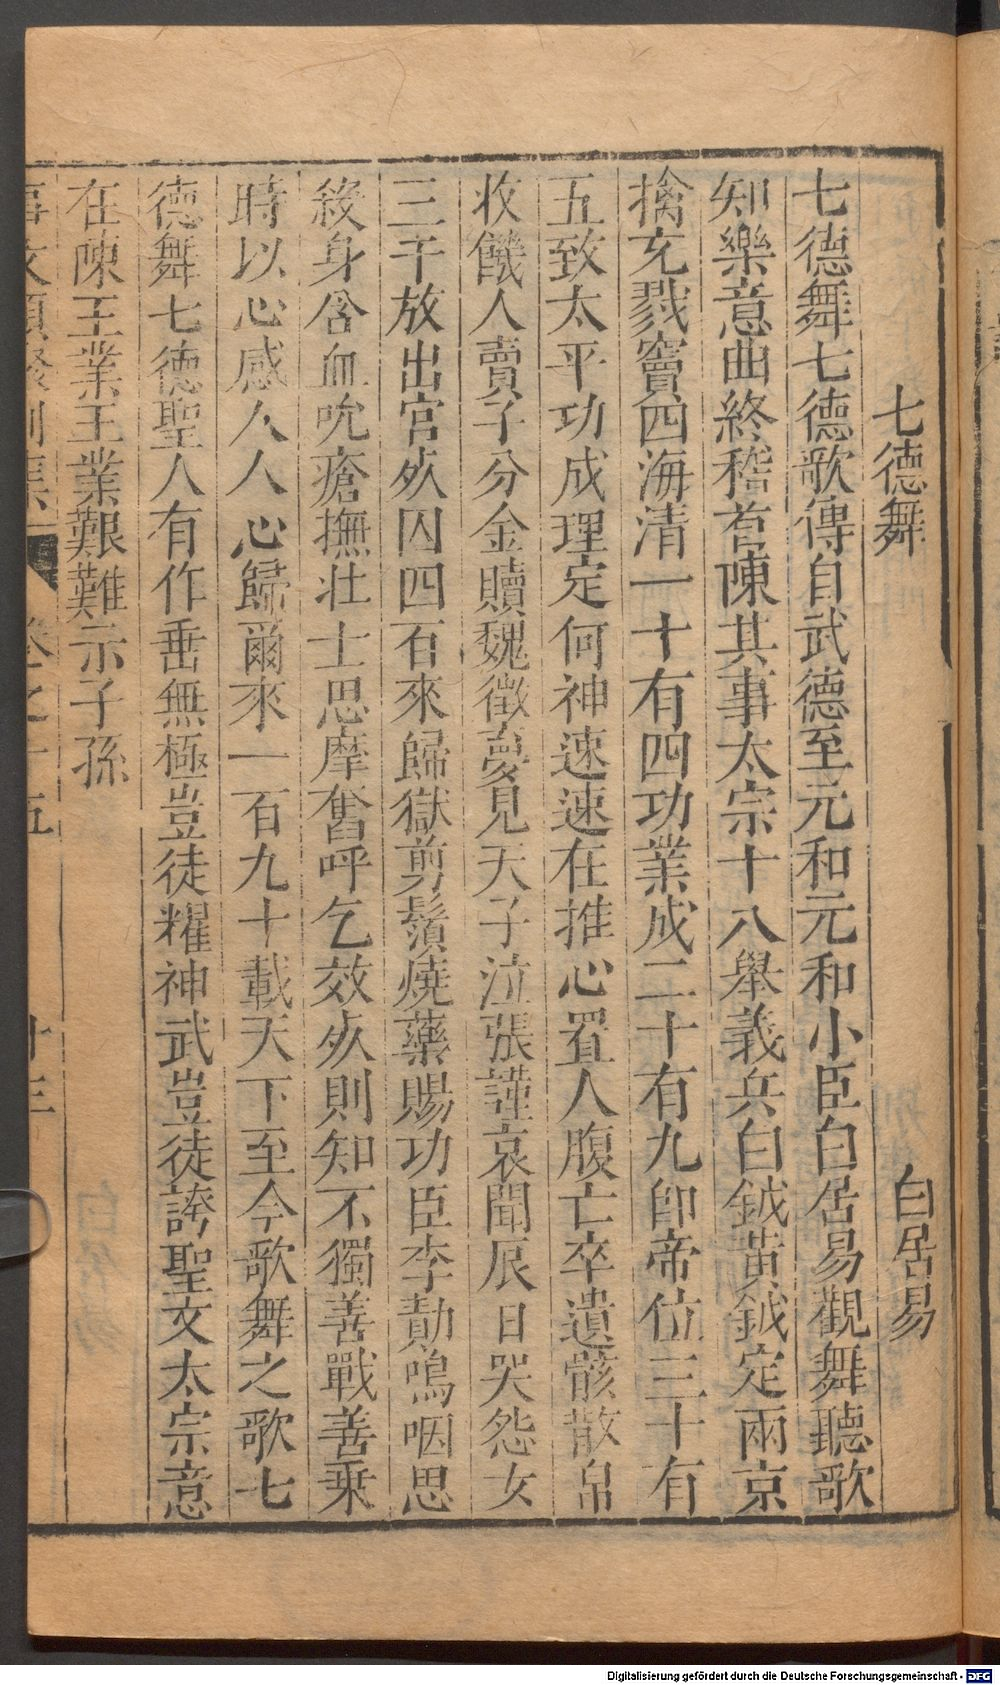 七德舞　白居易
七德舞七德歌傳自武德至元和元和小臣白居易觀舞聽歌
知樂意曲終稽首陳其事太宗十八舉義兵白鉞黃鉞定兩京
擒充戮竇四海清一十有四功業成二十有九卽帝位三十有
五致太平功成理定何神速速在推心置人腹亡卒遺骸散帛
收饑人賣子分金贖魏徵夢見天子泣張謹哀聞辰日哭怨女
三千放出宮𣦸囚四百來歸獄剪鬚燒藥賜功臣李勣嗚咽思
殺身含血吮瘡撫壯士思摩奮呼乞效𣦸則知不獨善戰善乘
時以心感人人心歸爾來一百九十載天下至今歌舞之歌七
德舞七德聖人有作垂無極豈徒耀神武豈徒誇聖文太宗意
在陳王業王業艱難示子孫
事文類聚別集 卷之十五 十三
Digitalisierung gefördert durch die Deutsche Forschungsgemeinschaft - DFG